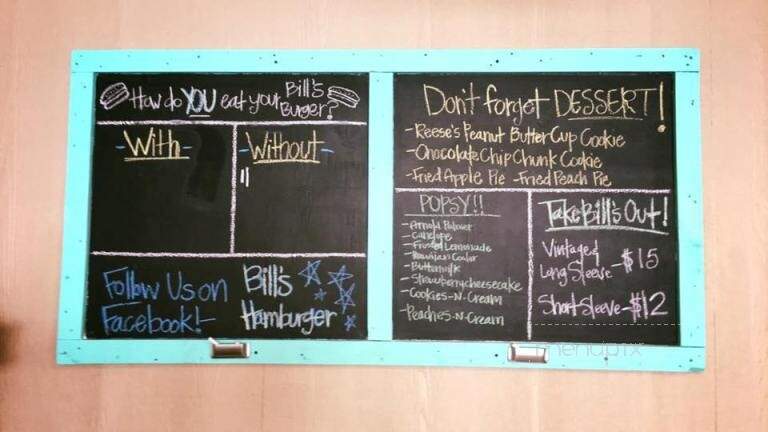 How do YOU eat your Bill's
Burger?
- With -
- Without -
Follow Us on
Facebook! -
Bill's
Hamburger
Don't forget DESSERT!
- Reese's Peanut Butter Cup Cookie
- Chocolate Chip Chunk Cookie
- Fried Apple Pie - Fried Peach Pie
POPSY!!
- Arnold Palmer
- Frosted Lemonade
- Hawaiian
- Buttermilk
- Strawberry cheesecake
- Cookies-N-Cream
- Peaches-N-Cream
Take Bill's Out!
Vintage &
Long Sleeve - $15
Short Sleeve - $12